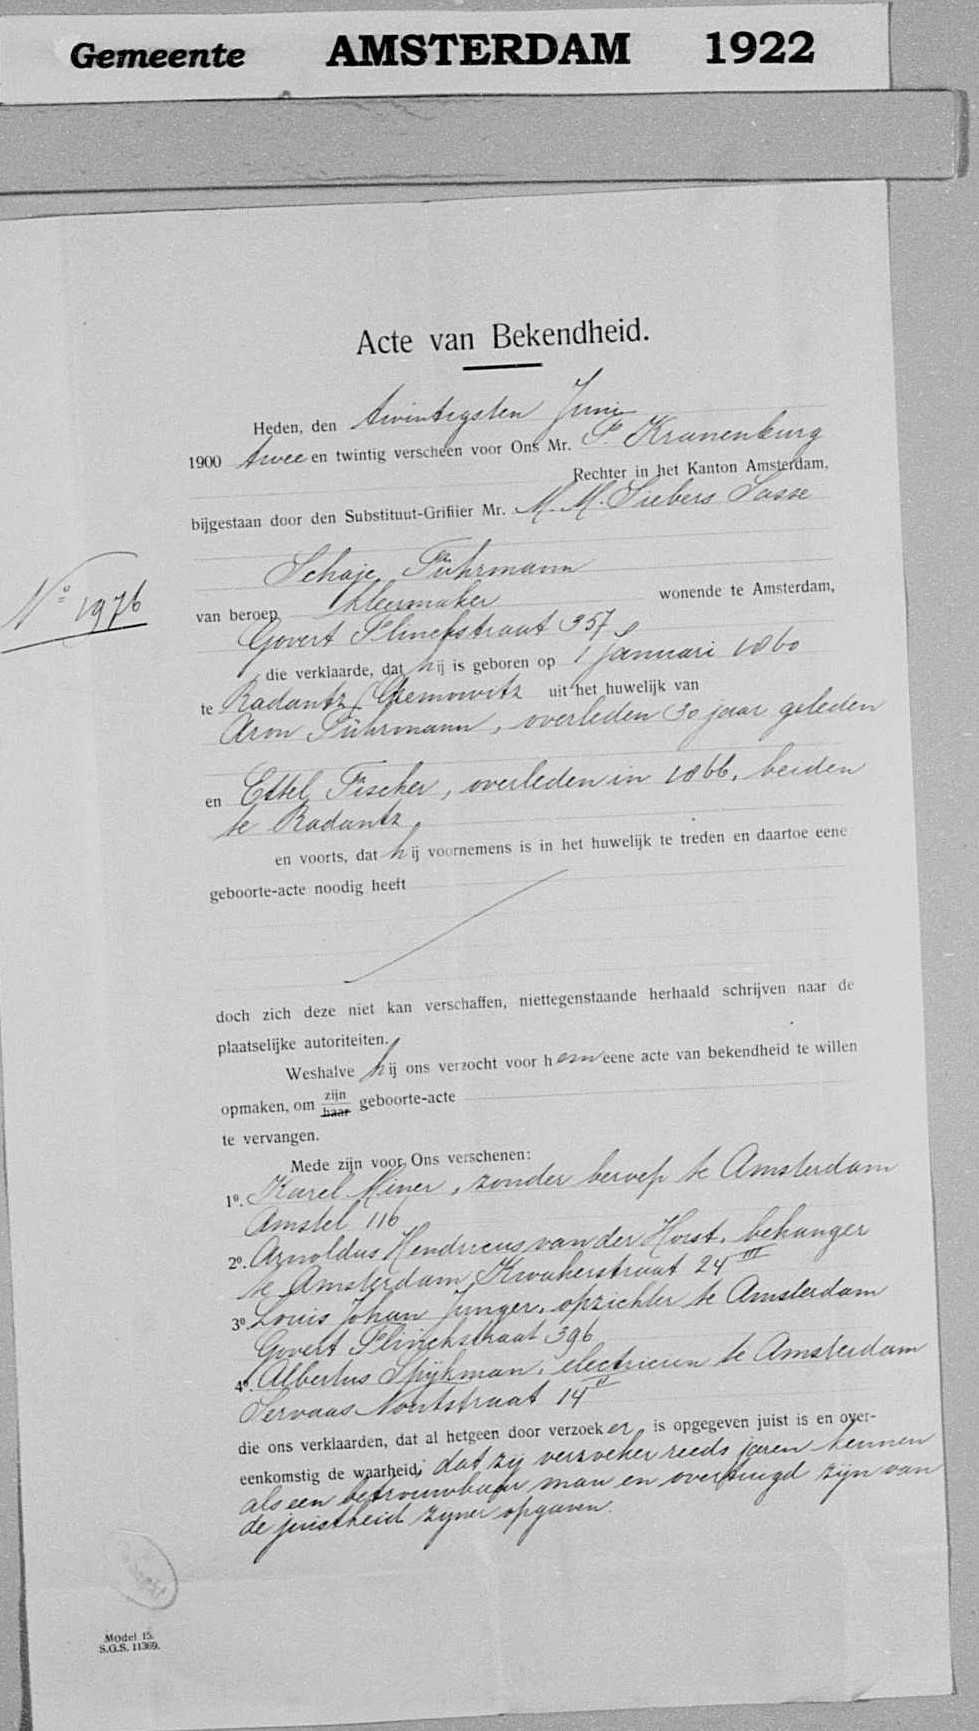 Gemeente AMSTERDAM 1922
Acte van Bekendheid.
Heden, den twintigsten Juni
1900 twee en twintig verscheen voor Ons Mr. P. Kranenburg
Rechter in het Kanton Amsterdam,
bijgestaan door den Substituut-Griffier Mr. M. M. Siebers Sasse
Schaje Führmann
No 1976
van beroep kleermaker wonende te Amsterdam,
Govert Flinckstraat 357
die verklaarde, dat hij is geboren op 1 Januari 1860
te Radautz uit het huwelijk van
Aron Führmann, overleden 30 jaar geleden
en Ettel Fischer, overleden in 1866, beiden
te Radautz,
en voorts, dat hij voornemens is in het huwelijk te treden en daartoe eene
geboorte-acte noodig heeft
doch zich deze niet kan verschaffen, niettegenstaande herhaald schrijven naar de
plaatselijke autoriteiten.
Weshalve hij ons verzocht voor hem eene acte van bekendheid te willen
opmaken, om zijn haar geboorte-acte
te vervangen.
Mede zijn voor Ons verschenen:
1o. Karel Miner, zonder beroep te Amsterdam
Amstel 116
2o. Arnoldus Hendricus van der Horst, behanger
te Amsterdam, Kwakerstraat 24 III
3o. Louis Johan Junger, opzichter te Amsterdam
Govert Flinckstraat 396
4o. Albertus Spijkman, electricien te Amsterdam
Servaas Noutstraat 14 II
die ons verklaarden, dat al hetgeen door verzoeker is opgegeven juist is en over-
eenkomstig de waarheid; dat zij verzoeker reeds jaren kennen
als een betrouwbaar man en overtuigd zijn van
de juistheid zijner opgaven.
Model 15.
S.G.S. 11369.